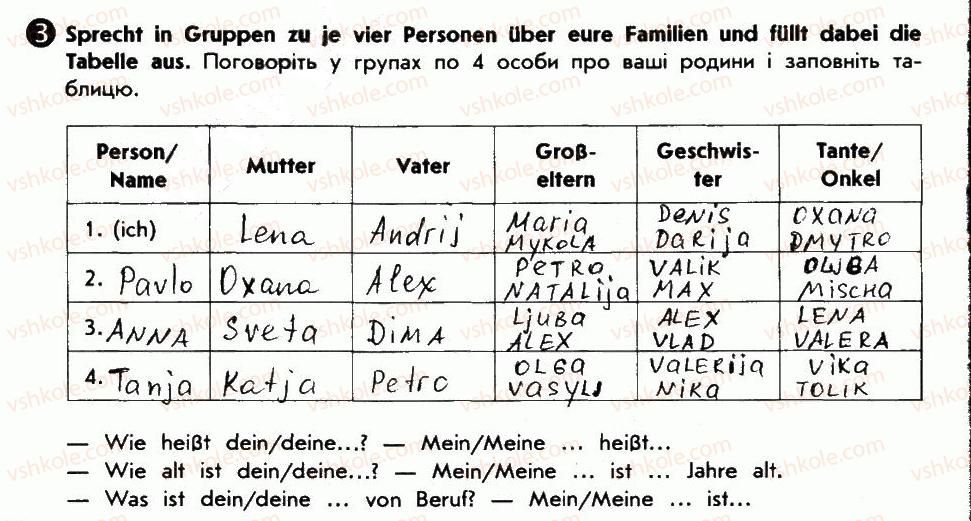 3 Sprecht in Gruppen zu je vier Personen über eure Familien und füllt dabei die
Tabelle aus. Поговоріть у групах по 4 особи про ваші родини і заповніть та-
блицю.
Person/ Name Mutter Vater Groß- eltern Geschwis- ter Tante/ Onkel
1. (ich) Lena Andrij Maria Mykola Denis Darija Oxana Dmytro
2. Pavlo Oxana Alex Petro, Natalija Valik Max Mischa
3. Anna Sveta Dima Ljuba Alex Alex Vlad Lena Valera
4. Tanja Katja Petro Olga Vasylj Valerija Nika Vika Tolik
— Wie heißt dein/deine...? — Mein/Meine ... heißt...
— Wie alt ist dein/deine...? — Mein/Meine ... ist ... Jahre alt.
— Was ist dein/deine ... von Beruf? — Mein/Meine ... ist...
vshkole.com